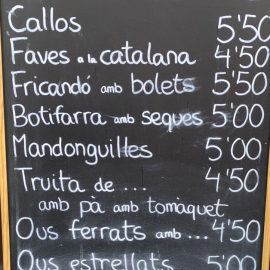 Callos 5'50
Faves a la catalana 4'50
Fricandó amb bolets 5'50
Botifarra amb seques 5'00
Mandonguilles 5'00
Truita de ... 4'50
amb pà amb tomaquet
Ous ferrats amb ... 4'50
Ous estrellats 5'00